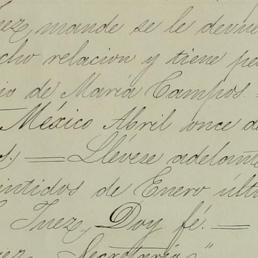 Juez, mande se le devue
cho relacion y tiene pe
io de María Campos
México Abril once d
s.) — Llévese adelante
intidos de Enero ulti
Juez, Doy fé. —
Secretario"